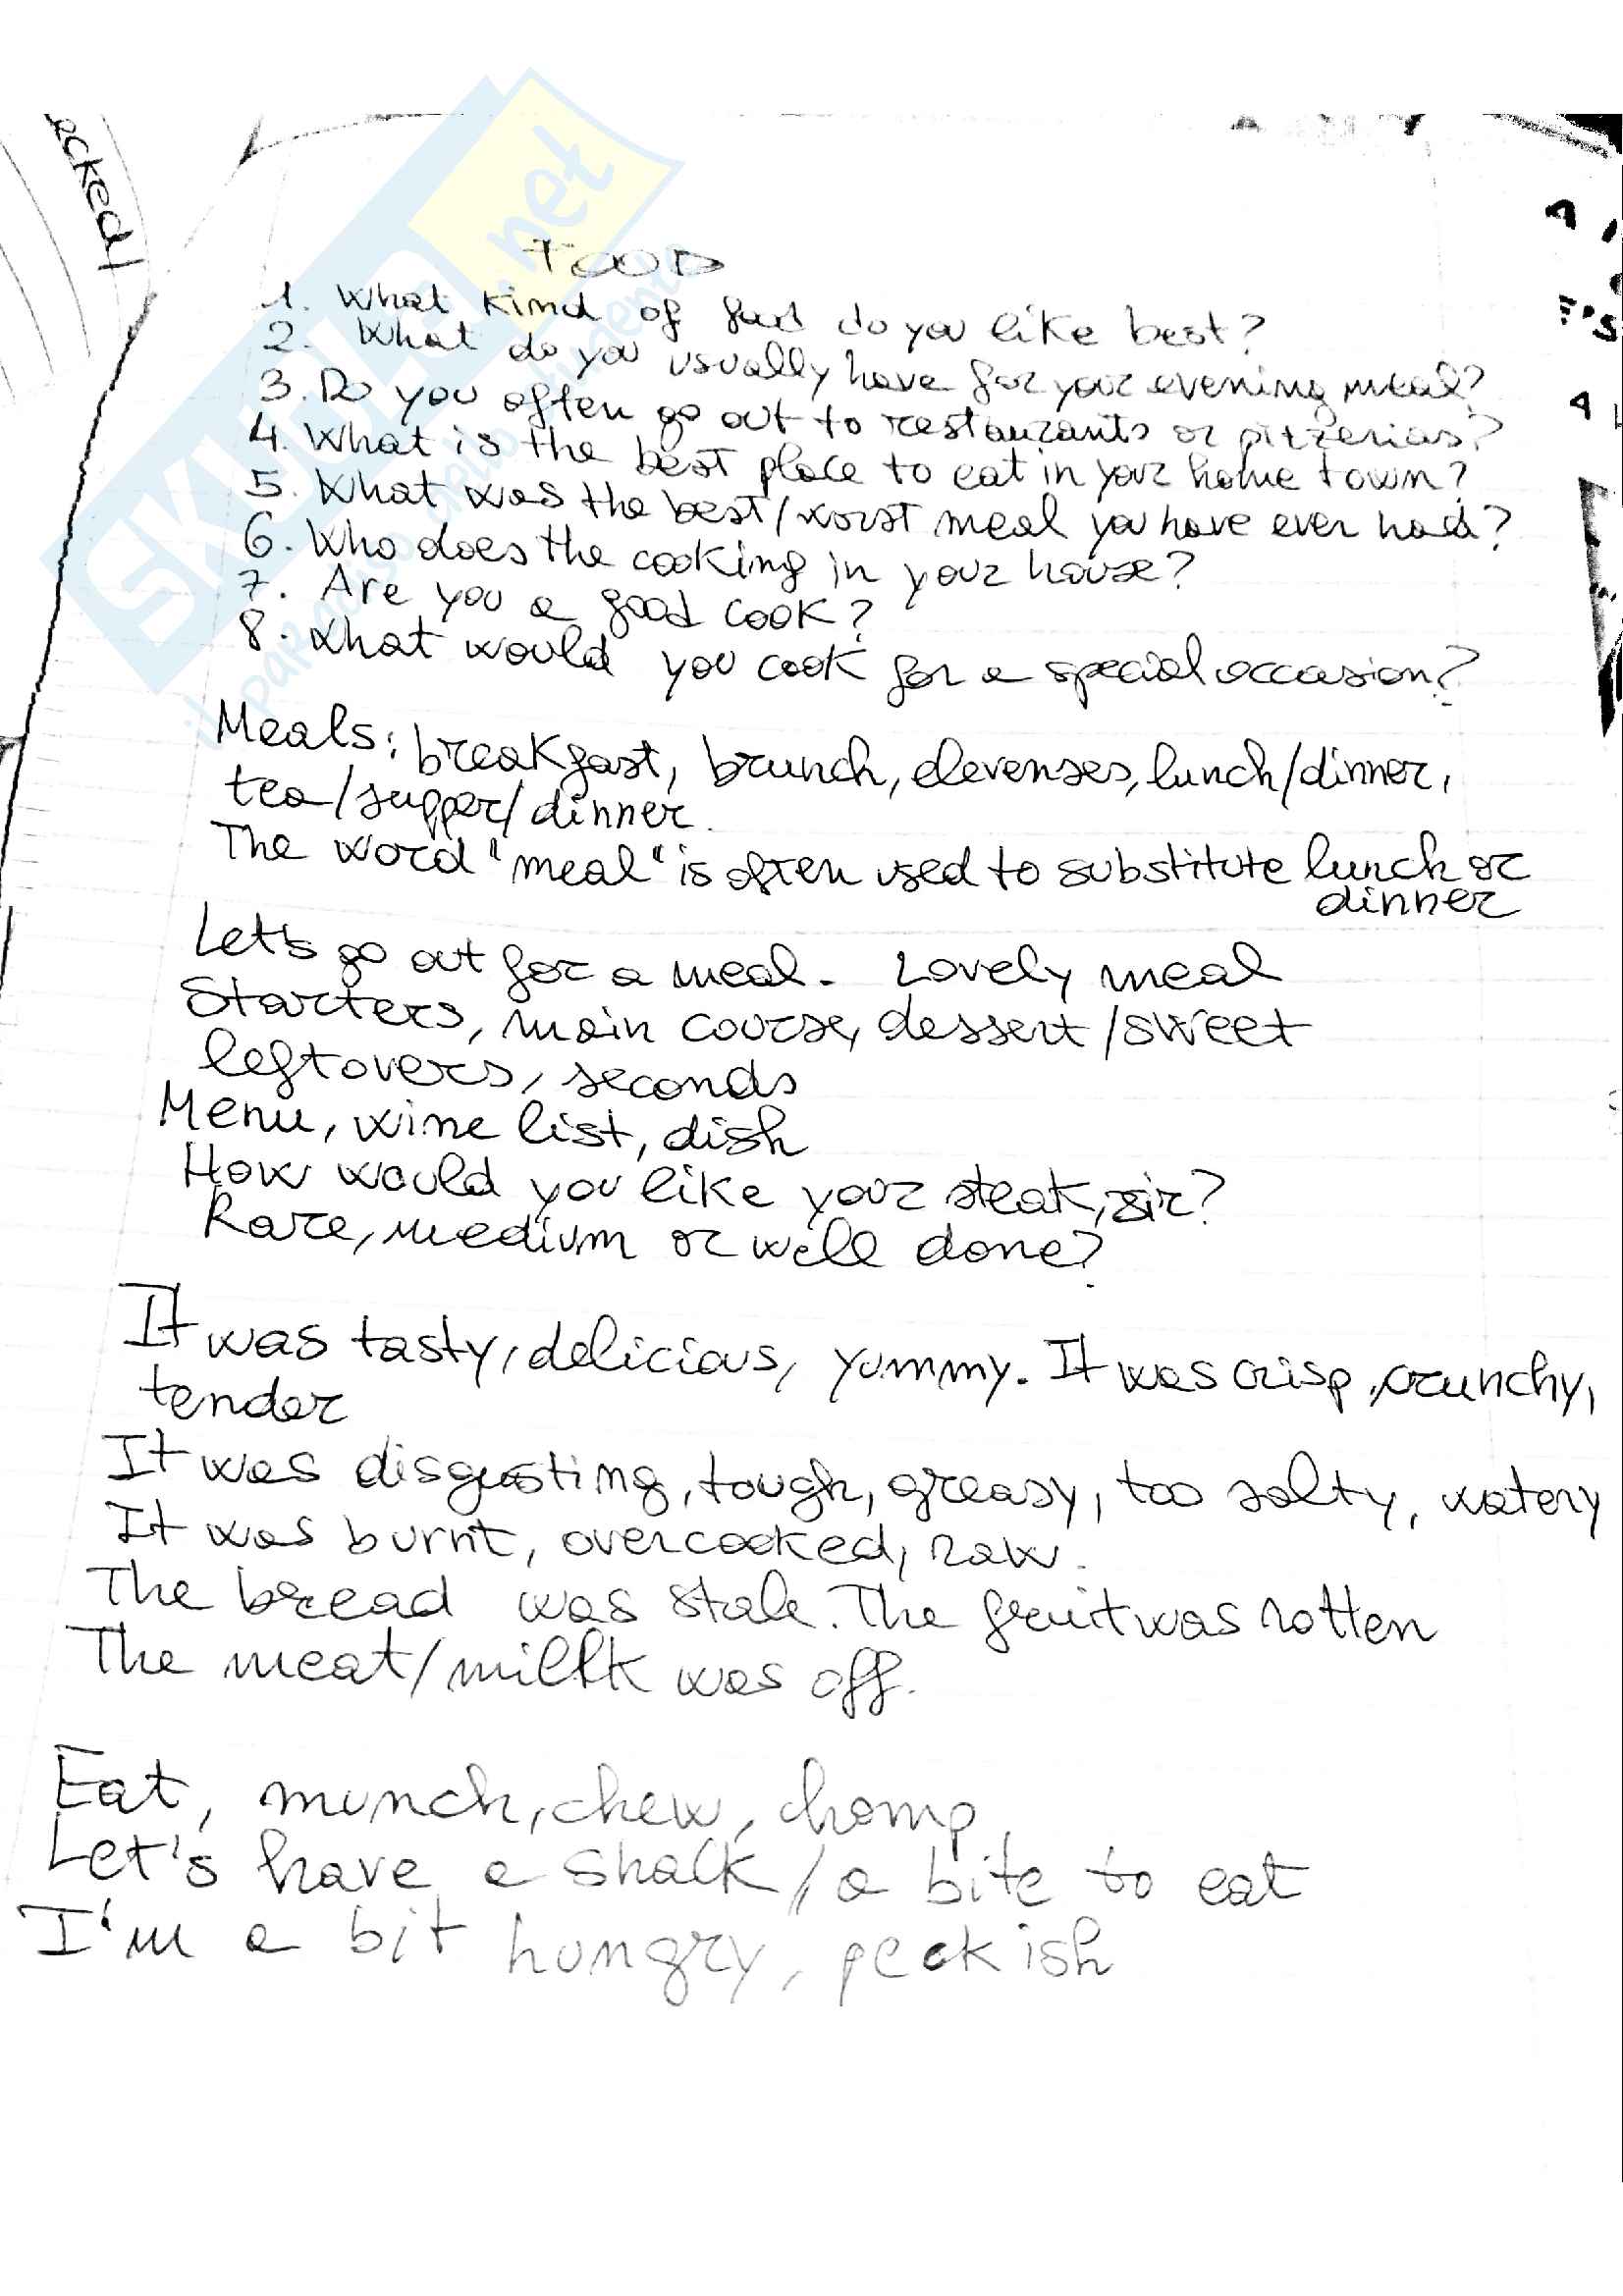 ecked
FOOD
1. What kind of food do you like best?
2. What do you usually have for your evening meal?
3. Do you often go out to restaurants or pizzerias?
4. What is the best place to eat in your home town?
5. What was the best/worst meal you have ever had?
6. Who does the cooking in your house?
7. Are you a good cook?
8. What would you cook for a special occasion?
Meals: breakfast, brunch, elevenses, lunch/dinner,
tea/supper/dinner.
The word "meal" is often used to substitute lunch or
dinner
Let's go out for a meal. Lovely meal
Starters, main course, dessert/sweet
leftovers, seconds
Menu, wine list, dish
How would you like your steak, sir?
Rare, medium or well done?
It was tasty, delicious, yummy. It was crisp, crunchy,
tender
It was disgusting, tough, greasy, too salty, watery
It was burnt, overcooked, raw.
The bread was stale. The fruit was rotten
The meat/millk was off.
Eat, munch, chew, chomp
Let's have a snack/a bite to eat
I'm a bit hungry, peckish
SKUOLA.net